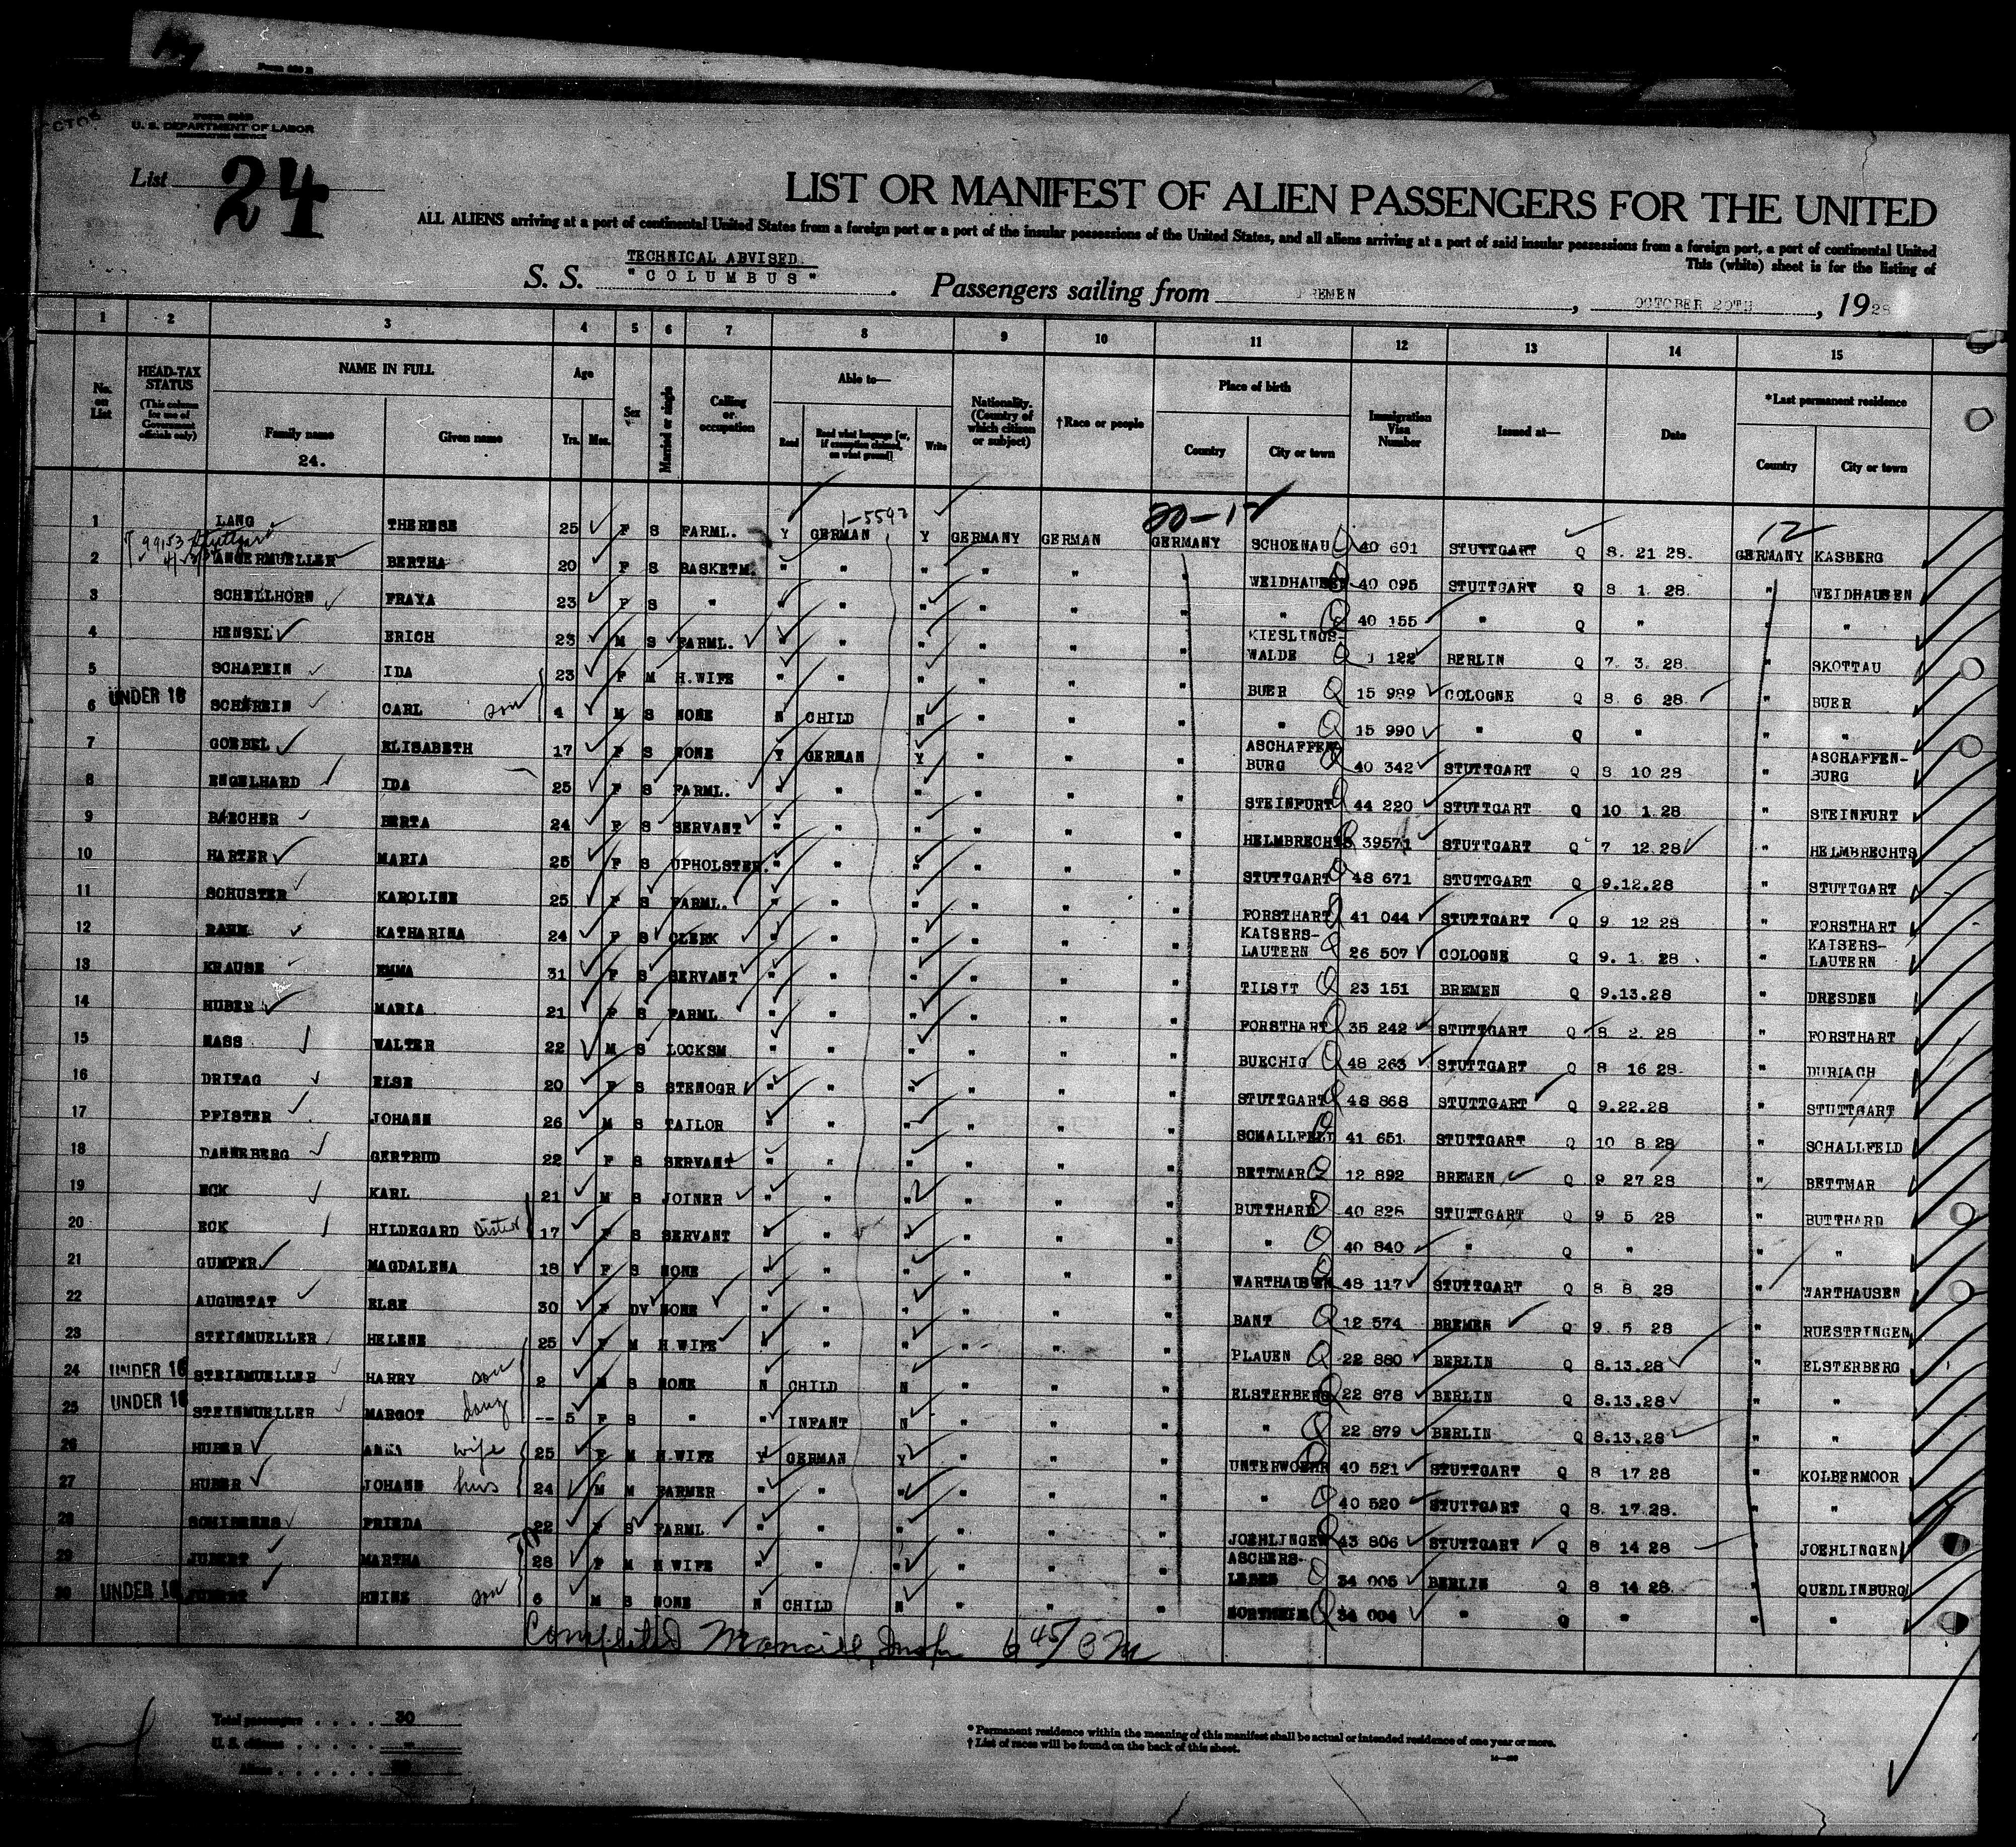 U. S. DEPARTMENT OF LABOR
List 24
LIST OR MANIFEST OF ALIEN PASSENGERS FOR THE UNITED
ALL ALIENS arriving at a port of continental United States from a foreign port or a port of the insular possessions of the United States, and all aliens arriving at a port of said insular possessions from a foreign port, a port of continental United
This (white) sheet is for the listing of
TECHNICAL ADVISED.
S. S. "COLUMBUS". Passengers sailing from BREMEN, OCTOBER 20TH, 1928
1 2 3 4 5 6 7 8 9 10 11 12 13 14 15
No. on List HEAD-TAX STATUS (This column for use of Government officials only) NAME IN FULL Family name Given name Age Yrs. Mos. Sex Married or single Calling or occupation Able to— Read Read what language [or, if exemption claimed, on what ground] Write Nationality. (Country of which citizen or subject) †Race or people Place of birth Country City or town Immigration Visa Number Issued at— Date *Last permanent residence Country City or town
24.
20-12 12
1-5592
1 LANG THERESE 25 F S FARML. Y GERMAN Y GERMANY GERMAN GERMANY SCHOENAU 40 601 STUTTGART Q 8. 21 28. GERMANY KASBERG
99153 Stuttgart
2 ANGERMUELLER BERTHA 20 F S BASKETM. " " " " " " WEIDHAUSEN 40 095 STUTTGART Q 8 1. 28. " WEIDHAUSEN
3 SCHELLHORN FRAYA 23 F S " " " " " " " " 40 155 " Q " " "
4 HENSEL ERICH 23 M S FARML. " " " " " " KIESLINGS-WALDE 1 122 BERLIN Q 7. 3. 28. " SKOTTAU
5 SCHAREIN IDA 23 F M H.WIFE " " " " " " BUER 15 989 COLOGNE Q 8 6 28. " BUER
6 UNDER 16 SCHAREIN CARL son 4 M S NONE N CHILD N " " " " 15 990 " Q " " "
7 GOEBEL ELISABETH 17 F S NONE Y GERMAN Y " " " ASCHAFFEN-BURG 40 342 STUTTGART Q 8 10 28 " ASCHAFFEN-BURG
8 ENGELHARD IDA 25 F S FARML. " " " " " " STEINFURT 44 220 STUTTGART Q 10 1.28 " STEINFURT
9 BAECHER BERTA 24 F S SERVANT " " " " " " HELMBRECHTS 39571 STUTTGART Q 7 12.28 " HELMBRECHTS
10 HARTER MARIA 25 F S UPHOLSTER. " " " " " " STUTTGART 48 671 STUTTGART Q 9.12.28 " STUTTGART
11 SCHUSTER KAROLINE 25 F S FARML. " " " " " " FORSTHART 41 044 STUTTGART Q 9. 12 28 " FORSTHART
12 RAHM KATHARINA 24 F S CLERK " " " " " " KAISERS-LAUTERN 26 507 COLOGNE Q 9. 1. 28 " KAISERS-LAUTERN
13 KRAUSE EMMA 31 F S SERVANT " " " " " " TILSIT 23 151 BREMEN Q 9.13.28 " DRESDEN
14 HUBER MARIA 21 F S FARML " " " " " " FORSTHART 35 242 STUTTGART Q 8 2. 28 " FORSTHART
15 WALTER 22 M S LOCKSM " " " " " " BUECHIG 48 263 STUTTGART Q 8 16 28. " DURLACH
16 DRITAG ELSE 20 F S STENOGR " " " " " " STUTTGART 48 868 STUTTGART Q 9.22.28 " STUTTGART
17 PFISTER JOHANN 26 M S TAILOR " " " " " " SCHALLFELD 41 651 STUTTGART Q 10 8.28 " SCHALLFELD
18 DANNEBERG GERTRUD 22 F S SERVANT " " " " " " BETTMAR 12 892 BREMEN Q 9 27 28 " BETTMAR
19 ECK KARL 21 M S JOINER " " " " " " BUTTHARD 40 828 STUTTGART Q 9 5 28 " BUTTHARD
20 ECK HILDEGARD Sister 17 F S SERVANT " " " " " " " 40 840 " Q " " "
21 GUMPER MAGDALENA 18 F S NONE " " " " " " WARTHAUSEN 48 117 STUTTGART Q 8 8 28 " WARTHAUSEN
22 AUGUSTAT ELSE 30 F DV NONE " " " " " " BANT 12 574 BREMEN Q 9. 5 28 " RUESTRINGEN
23 STEINMUELLER HELENE 25 F M H.WIFE " " " " " " PLAUEN 22 880 BERLIN Q 8.13.28 " ELSTERBERG
24 UNDER 16 STEINMUELLER HARRY son 2 M S NONE N CHILD N " " " ELSTERBERG 22 878 BERLIN Q 8.13.28 " "
25 UNDER 16 STEINMUELLER MARGOT daug -- 5 F S " " INFANT N " " " " 22 879 BERLIN Q 8.13.28 " "
26 HUBER ANNA wife 25 F M H.WIFE Y GERMAN Y " " " UNTERWOEHR 40 521 STUTTGART Q 8 17 28 " KOLBERMOOR
27 HUBER JOHANN hus 24 M M FARMER " " " " " " " 40 520 STUTTGART Q 8. 17.28. " "
28 FRIEDA 22 F S FARML " " " " " " JOEHLINGEN 43 806 STUTTGART Q 8 14 28 " JOEHLINGEN
29 MARTHA 28 F M H WIFE " " " " " " ASCHERS-LEBEN 34 005 BERLIN Q 8 14 28. " QUEDLINBURG
30 UNDER 16 HEINZ son 6 M S NONE N CHILD N " " " NORTHEIM 34 004 " Q " " "
Completed 6 45/ PM
Total passengers . . . . 30
U. S. citizens . . . . . –
Aliens . . . . . .
* Permanent residence within the meaning of this manifest shall be actual or intended residence of one year or more.
† List of races will be found on the back of this sheet.